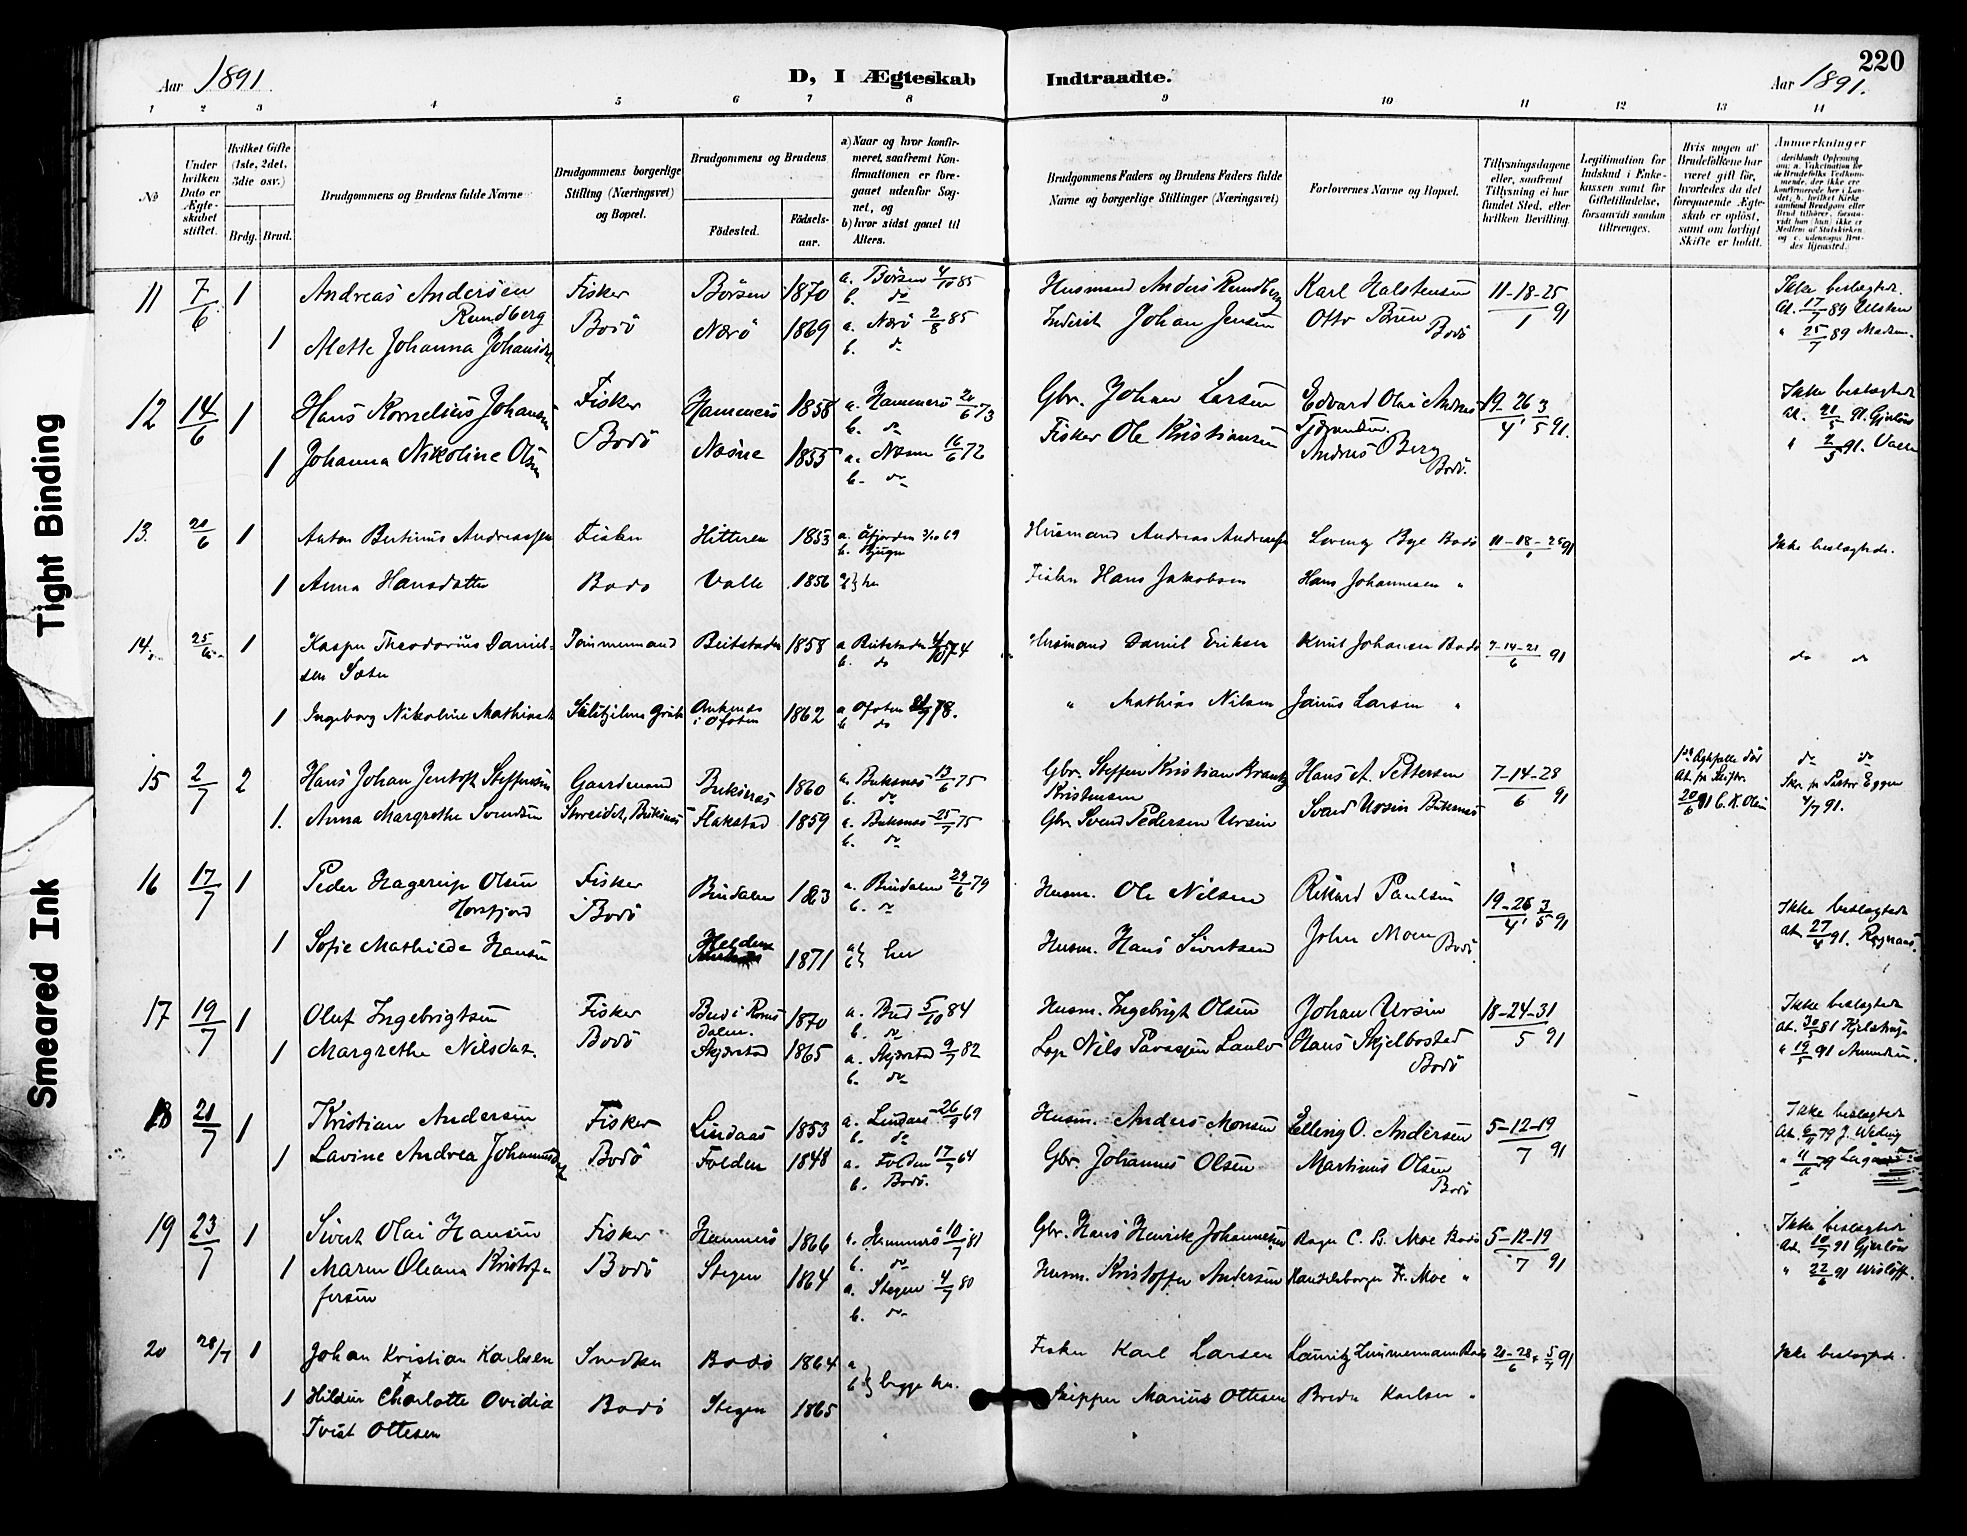 220
Aar 1891
D, I Ægteskab
Indtraadte.
Aar 1891.
1 2 3 4 5 6 7 8 9 10 11 12 13 14
№
Under hvilken Dato er Ægteskabet stiftet.
Hvilket Gifte (1ste, 2det, 3die osv.)
Brdg. Brud.
Brudgommens og Brudens fulde Navne
Brudgommens borgerlige Stilling (Næringsvei) og Bopæl.
Brudgommens og Brudens
Fødested.
Fødselsaar.
a) Naar og hvor konfirmeret, saafremt Konfirmationen er foregaaet udenfor Sognet, og
b) hvor sidst gaaet til Alters.
Brudgommens Faders og Brudens Faders fulde Navne og borgerlige Stillinger (Næringsvei)
Forlovernes Navne og Bopæl.
Tillysningsdagene eller, saafremt Tillysning ei har fundet Sted, efter hvilken Bevilling.
Legitimation for Indskud i Enkekassen samt for Giftetilladelse, forsaavidt saadan tiltrænges.
Hvis nogen af Brudefolkene har været gift før, hvorledes da det foregaaende Ægteskab er opløst, samt om lovligt Skifte er holdt.
Anmærkninger
11 7/6 1 Andreas Andersen Fisker Børsen 1870 a. Børsen 4/10 85 Husmand Anders Rundberg Karl Halstensen 11-18-25 Ikke beslægtede.
Rundberg b. do 1 91 At. 17/7 89
1 Mette Johanna Johansd. Bodö Nærö 1869 a. Nærö 2/8 85 Inderst Johan Jensen Otto Brun Bodö " 25/7 89
b. do
12 14/6 1 Hans Kornelius Johansen Fisker Hammerö 1858 a. Hammerö 20/6 73 Gbr. Johan Larsen Edvard Olai Andreas 19-26/4, 3/5 91. Ikke beslægtede
b. do
1 Johanna Nikoline Olsen Bodö Næsne 1855 a. Næsne 16/6 72 Fisker Ole Kristiansen Andreas Berg Bodö.
b. do
13. 21/6 1 Anton Bertinus Andreassen Fisker Hitteren 1853 a. Åfjorden 3/10 69 Husmand Andreas Andreassen Lorentz Bye Bodö 11-18-25 91 Ikke beslægtede.
b. Bjugn
1 Anna Hansdatter Bodö Valle 1856 a} b} her Fisker Hans Jakobsen Hans Johannesen "
14. 25/6 1 Kasper Theodorius Daniel- Tømmermand Beitstaden 1858 a Beitstaden 4/10 74 Husmand Daniel Eriksen Knut Johansen Bodö 7-14-21/6 91 do do
sen Sæter b. do
1 Ingeborg Nikoline Mathiasd. Sulitjelma Grube Ankenes i Ofoten 1862 a Ofoten 21/7 78. " Mathias Nilsen Jaius Larsen "
b do
15 2/7 2 Hans Johan Jentoft Steffensen Gaardmand Buksnæs 1860 a. Buksnæs 13/6 75 Gbr. Steffen Kristian Krantz Hans A. Pettersen 7-14-28 do do
b. do Kristensen 6 91
1. Anna Margrethe Svendsen Flakstad 1859 a. Buksnæs 25/7 75 Gbr. Svend Pedersen Ursin Svard Ursin Buksnæs 20/6 91 C. K. Olsen 4/7 91.
b. do
16 17/7 1 Peder Hagerup Olsen Fisker Bindalen 1863 a. Bindalen 29/6 79 Husm. Ole Nilsen Rikard Paulsen 19-26/4, 3/5 91 Ikke beslægtede
Horsfjord Bodö b. do
1 Sofie Mathilde Hansen 1871 a} b} her Husm. Hans Sivertsen John Moen Bodö. At. 27/4 91.
17 19/7 1 Oluf Ingebrigtsen Fisker Bud i Romsdalen. 1870 a. Bud 5/10 84 Husm. Ingebrigt Olsen Johan Ursin 18-24-31 Ikke beslægtede
b. do 5 91
1 Margrethe Nilsdat. Bodö Skjerstad 1865 a. Skjerstad 9/7 82 Nils Hans Skjelbostad Bodö
b. do
18 21/7 1 Kristian Andersen Fisker Lindaas 1853 a. Lindaas 26/9 69 Husm. Anders Monsen Elling O. Andersen 5-12-19 Ikke beslægtede
b. do 7 91
1 Lavine Andrea Bodö Folden 1848 a. Folden 17/7 64 Gbr. Johannes Olsen Martinus Olsen Bodö
b. Bodö.
19 23/7 1 Sivert Olai Hansen Fisker Hammerö 1866 a. Hammerö 10/7 81 Gbr. Hans Henrik Johannesen C. B. Moe Bodö 5-12-19 Ikke beslægtede
b. do 7 91 At. 10/7 91 Gjerløw
1 Maren Oleana Kristof- Bodö Stegen 1864 a. Stegen 4/7 80 Husm. Kristoffer Andersen Handelsborger Fr. Moe " " 22/6 91 Wisløff.
fersen b. do
20 28/7 1 Johan Kristian Karlsen Snedker Bodö 1864 a Fisker Karl Larsen Lauritz Zimmermann Bodö 21-28/6, 5/7 91 Ikke beslægtede.
b} begge her.
1 Hildur Charlotte Ovidia Bodö Stegen 1865 Skipper Marius Ottesen Breda Karlsen "
Tvist Ottesen
Tight Binding
Smeared Ink